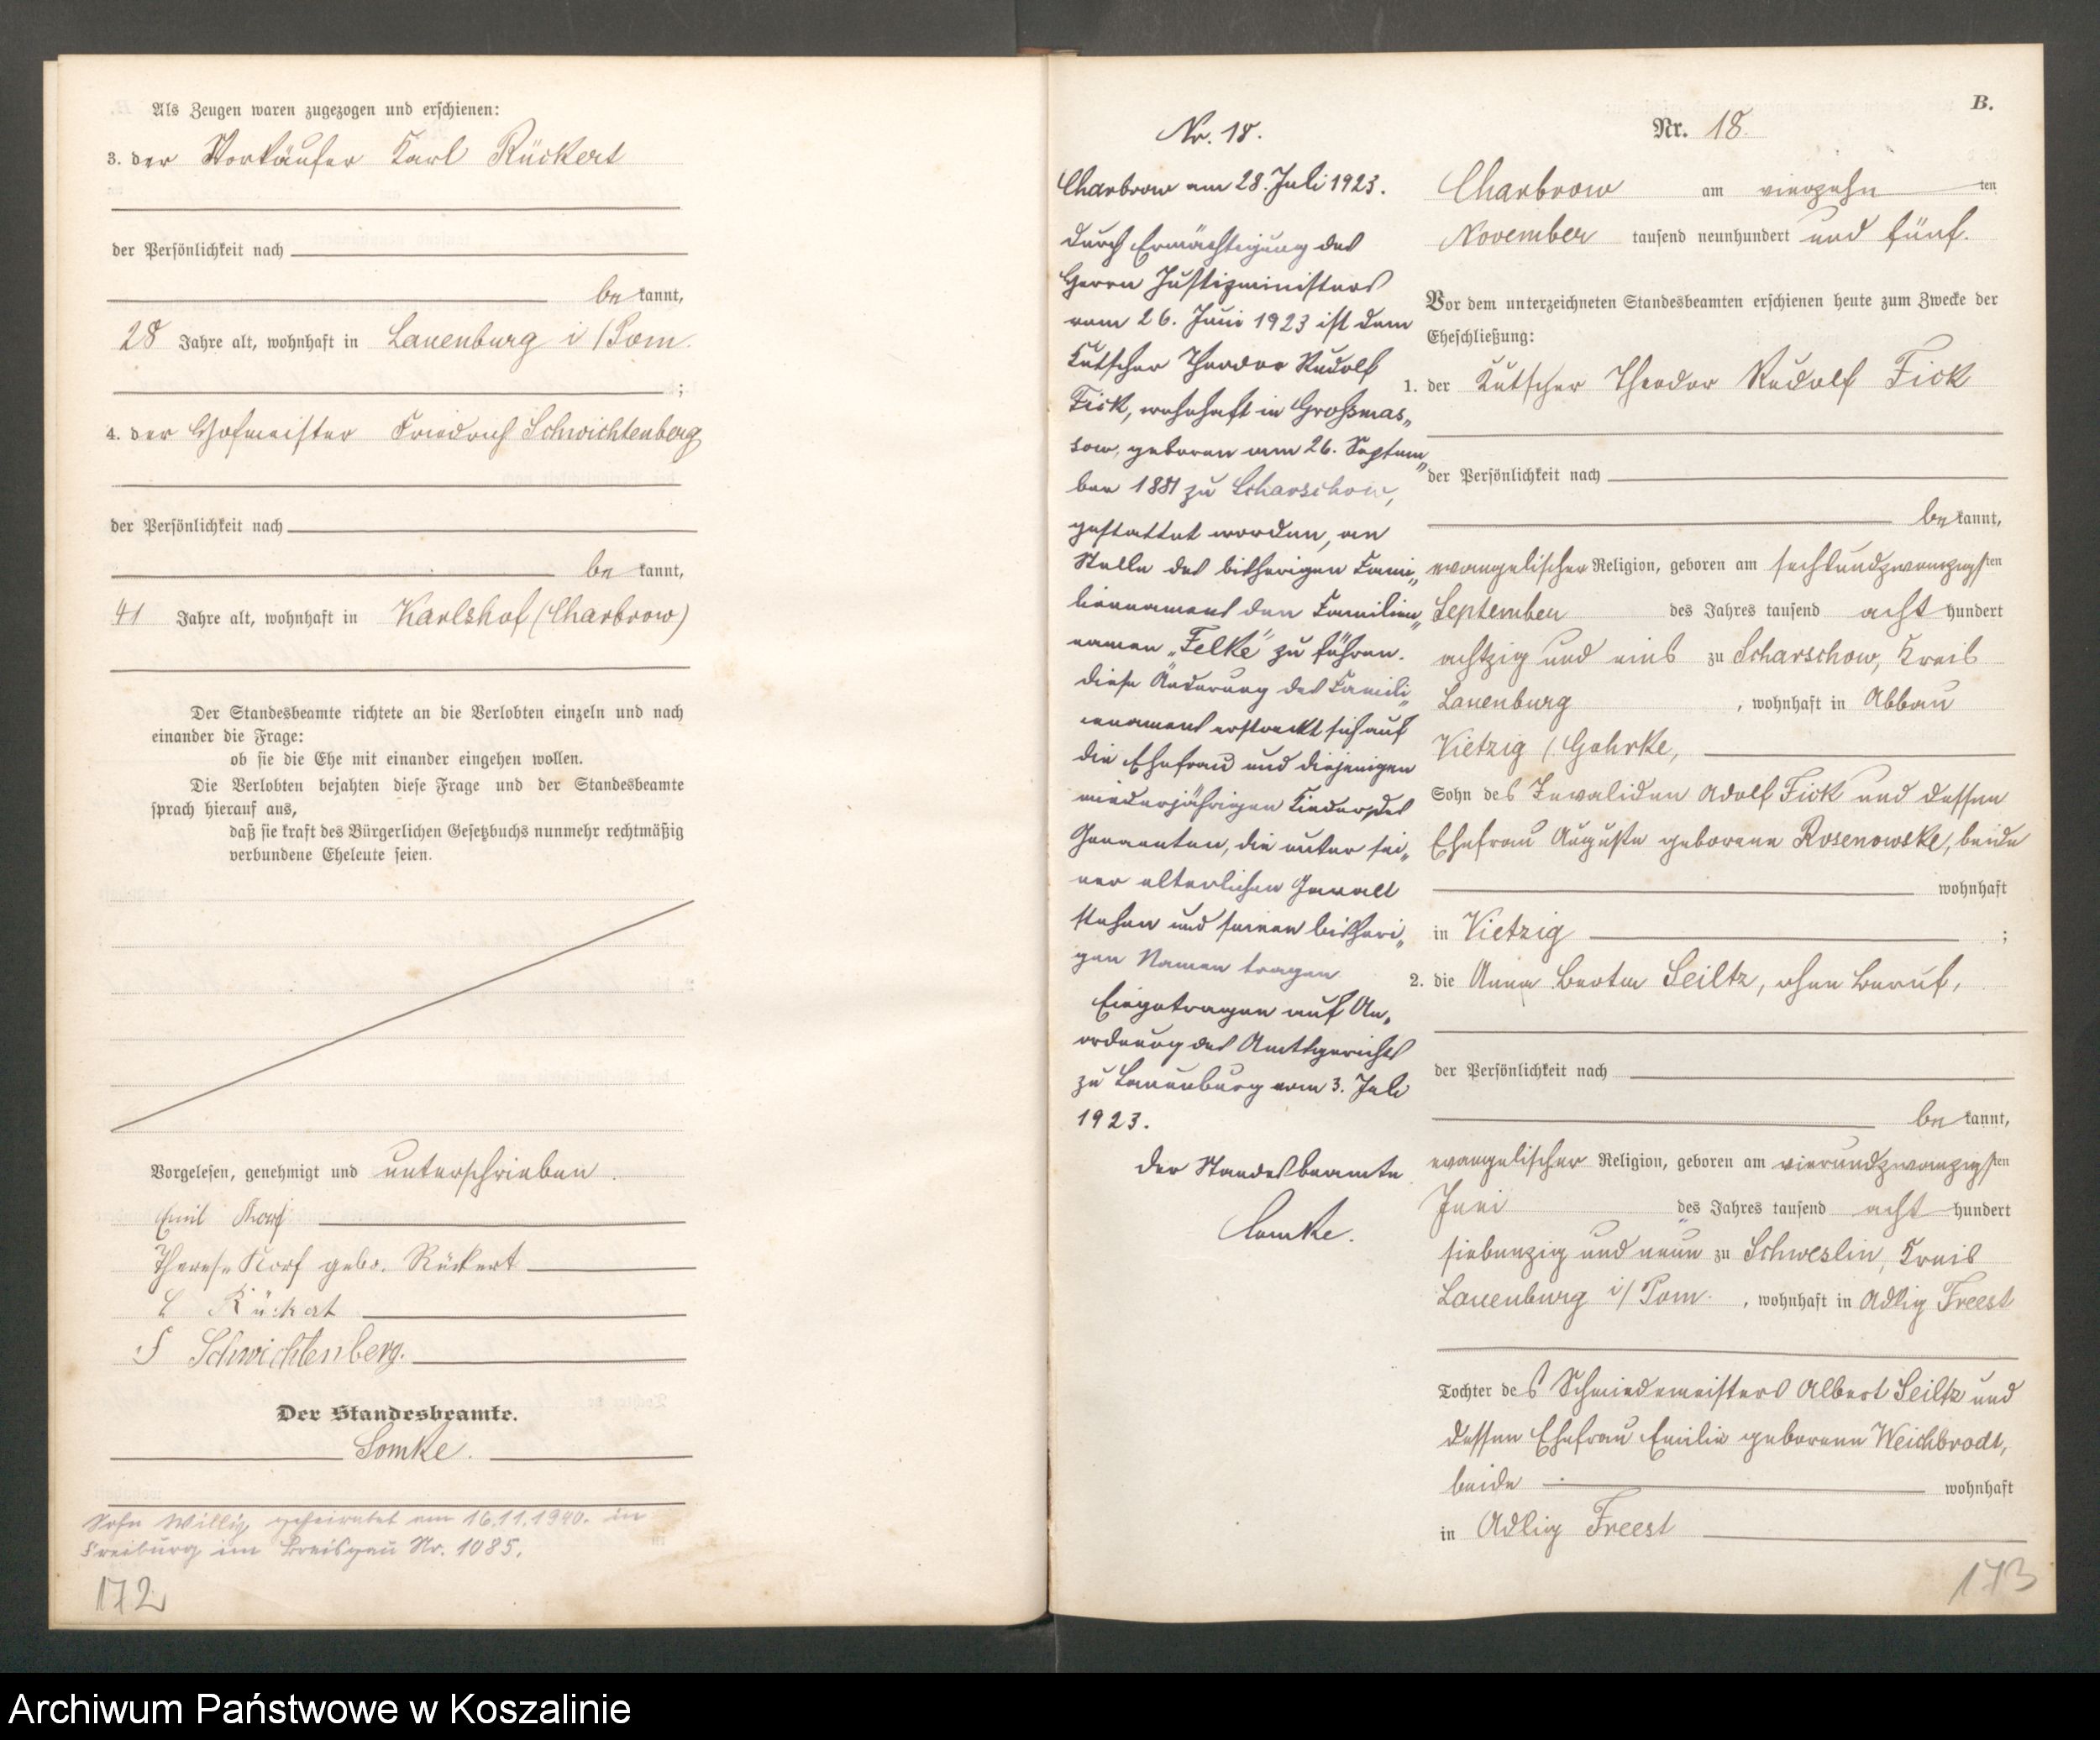 Als Zeugen waren zugezogen und erschienen:
3. der Vorkäufer Karl Rückert
der Persönlichkeit nach
be kannt,
28 Jahre alt, wohnhaft in Lauenburg i/Pom.
;
4. der Hofmeister Friedrich Schwichtenberg
der Persönlichkeit nach
be kannt,
41 Jahre alt, wohnhaft in Karlshof (Charbrow)
Der Standesbeamte richtete an die Verlobten einzeln und nach
einander die Frage:
ob sie die Ehe mit einander eingehen wollen.
Die Verlobten bejahten diese Frage und der Standesbeamte
sprach hierauf aus,
daß sie kraft des Bürgerlichen Gesetzbuchs nunmehr rechtmäßig
verbundene Eheleute seien.
Vorgelesen, genehmigt und unterschrieben.
Emil Korf
Therese Korf gebo. Rückert
C Rückert
F Schwichtenberg.
Der Standesbeamte.
Lomke.
Sohn Willy geheiratet am 16.11.1940. in
Freiburg im Breisgau Nr. 1085.
172
Nr. 18.
Charbrow am 28. Juli 1923.
Durch Ermächtigung des
Herrn Justizministers
vom 26. Juni 1923 ist dem
Kutscher Theodor Rudolf
Fick, wohnhaft in Großmas„
sow, geboren am 26. Septem„
ber 1881 zu Scharschow,
gestattet worden, an
Stelle des bisherigen Fami„
liennamens den Familien„
namen „Felke“ zu führen.
Diese Änderung des Famili„
ennamens erstreckt sich auf
die Ehefrau und diejenigen
minderjährigen Kinder des
Genannten, die unter sei„
ner elterlichen Gewalt
stehen und seinen bisheri„
gen Namen tragen.
Eingetragen auf An„
ordnung des Amtsgerichts
zu Lauenburg vom 3. Juli
1923.
Der Standesbeamte
Lomke.
B.
Nr. 18.
Charbrow am vierzehn ten
November tausend neunhundert und fünf.
Vor dem unterzeichneten Standesbeamten erschienen heute zum Zwecke der
Eheschließung:
1. der Kutscher Theodor Rudolf Fick
der Persönlichkeit nach
be kannt,
evangelischer Religion, geboren am sechsundzwanzigsten
September des Jahres tausend acht hundert
achtzig und eins zu Scharschow, Kreis
Lauenburg, wohnhaft in Abbau
Vietzig / Gohrke,
Sohn des Invaliden Adolf Fick und dessen
Ehefrau Auguste geborene Rosenowske, beide
wohnhaft
in Vietzig ;
2. die Anna Berta Seiltz, ohne Beruf,
der Persönlichkeit nach
be kannt,
evangelischer Religion, geboren am vierundzwanzigsten
Juni des Jahres tausend acht hundert
siebenzig und neun zu Schweslin, Kreis
Lauenburg i/Pom., wohnhaft in Adlig Freest
Tochter des Schmiedemeisters Albert Seiltz und
dessen Ehefrau Emilie geborene Weichbrodt,
beide wohnhaft
in Adlig Freest
173
Archiwum Państwowe w Koszalinie